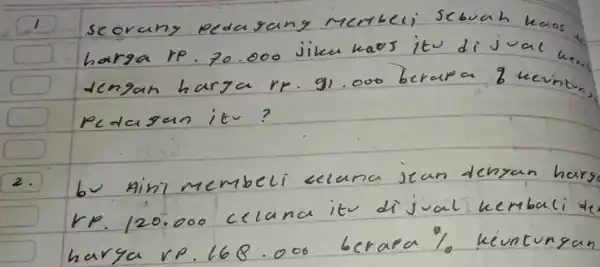 1 seorang pedagang membeli sebuah kaos
harga rp. 70.000 jika kaos itu di jual
dengan harga rp. 91.000 berapa %
pedagan itu ?
2. bu Aini membeli celana jean dengan harga
rp. 120.000 celana itu di jual kembali
harga rp. 168.000 berapa % keuntungan